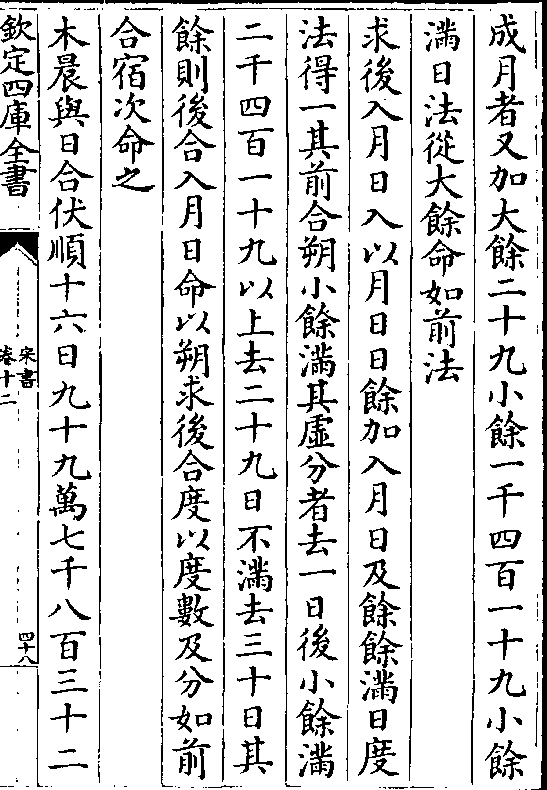 成月者又加大餘二十九小餘一千四百一十九小餘
滿日法從大餘命如前法
求後入月日入以月日日餘加入月日及餘餘滿日度
法得一其前合朔小餘滿其虛分者去一日後小餘滿
二千四百一十九以上去二十九日不滿去三十日其
餘則後合入月日命以朔求後合度以度數及分如前
合宿次命之
木晨與日合伏順十六日九十九萬七千八百三十二
欽定四庫全書
宋書
卷十二
四十八